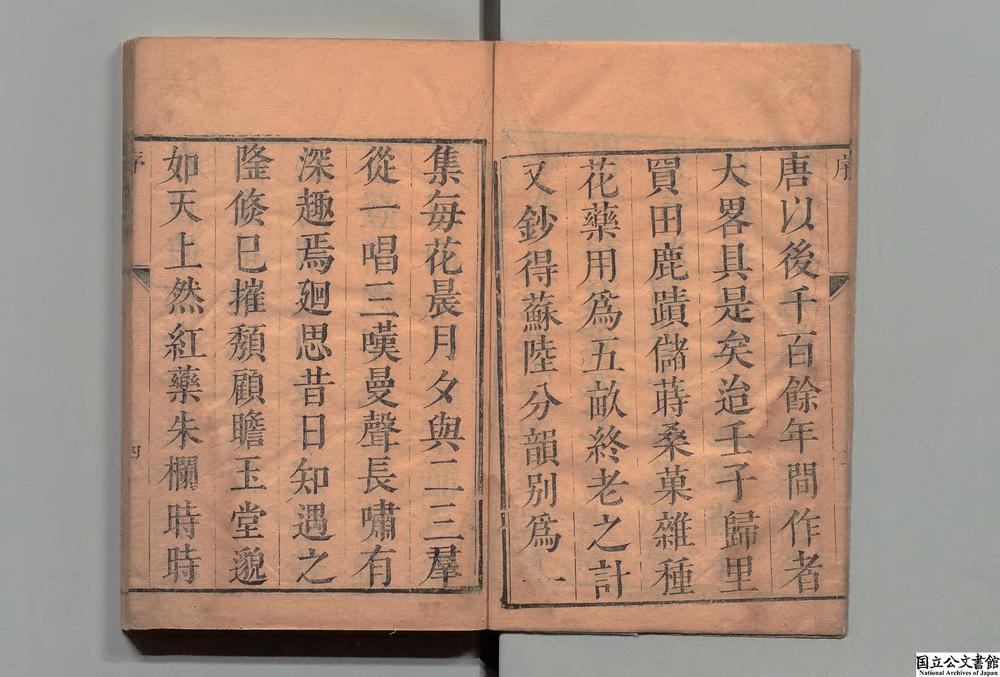 序
唐以後千百餘年間作者
大畧具是矣迨壬子歸里
買田鹿蹟儲蒔桑菓雜種
花藥用爲五畝終老之計
又鈔得蘇陸分韻別爲一
集每花晨月夕與二三羣
從一唱三嘆曼聲長嘯有
深趣焉廻思昔日知遇之
隆倐巳摧頹顧瞻玉堂邈
如天上然紅藥朱欄時時
序
四
国立公文書館
National Archives of Japan